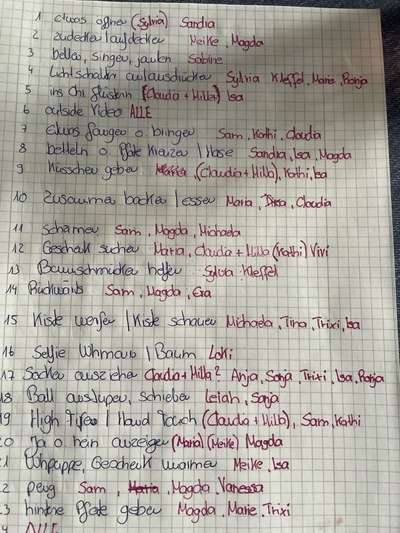 1 etwas öffnen (Sylvia) Sandra
2 zudecken/aufdecken Meike, Magda
3 bellen, singen, jaulen Sabine
4 Lichtschalter an/ausdrücken Sylvia Kleffel, Marie, Ronja
5 ins Ohr flüstern (Claudia + Milla) Isa
6 outside Video ALLE
7 etwas fangen o. bringen Sam, Kathi, Claudia
8 betteln o Pfote kreuzen/Nase Sandra, Isa, Magda
9 Küsschen geben Maria, (Claudia + Milla), Kathi, Isa
10 Zusammen backen/essen Maria, Claudia
11 schämen Sam, Magda, Michaela
12 Geschenk suchen Maria, Claudia + Milla (Kathi) Vivi
13 Baumschmücken helfen Sylvia Kleffel
14 Rückwärts Sam, Magda, Eva
15 Kiste werfen/Kiste schauen Michaela, Tina, Trixi, Isa
16 Selfie /Baum Loki
17 Socken ausziehen Claudia + Milla? Anja, Sonja Trixi, Isa, Ronja
18 Ball anstupsen, schieben Leiah, Sonja
19 High Five/Hand Touch (Claudia + Milla), Sam, Kathi
20 Ja o. nein anzeigen (Maria) (Meike) Magda
21 Geschenk Meike, Isa
2 peng Sam, Maria, Magda, Vanessa
3 hintere Pfote geben Magda, Marie, Trixi
4 ALLE